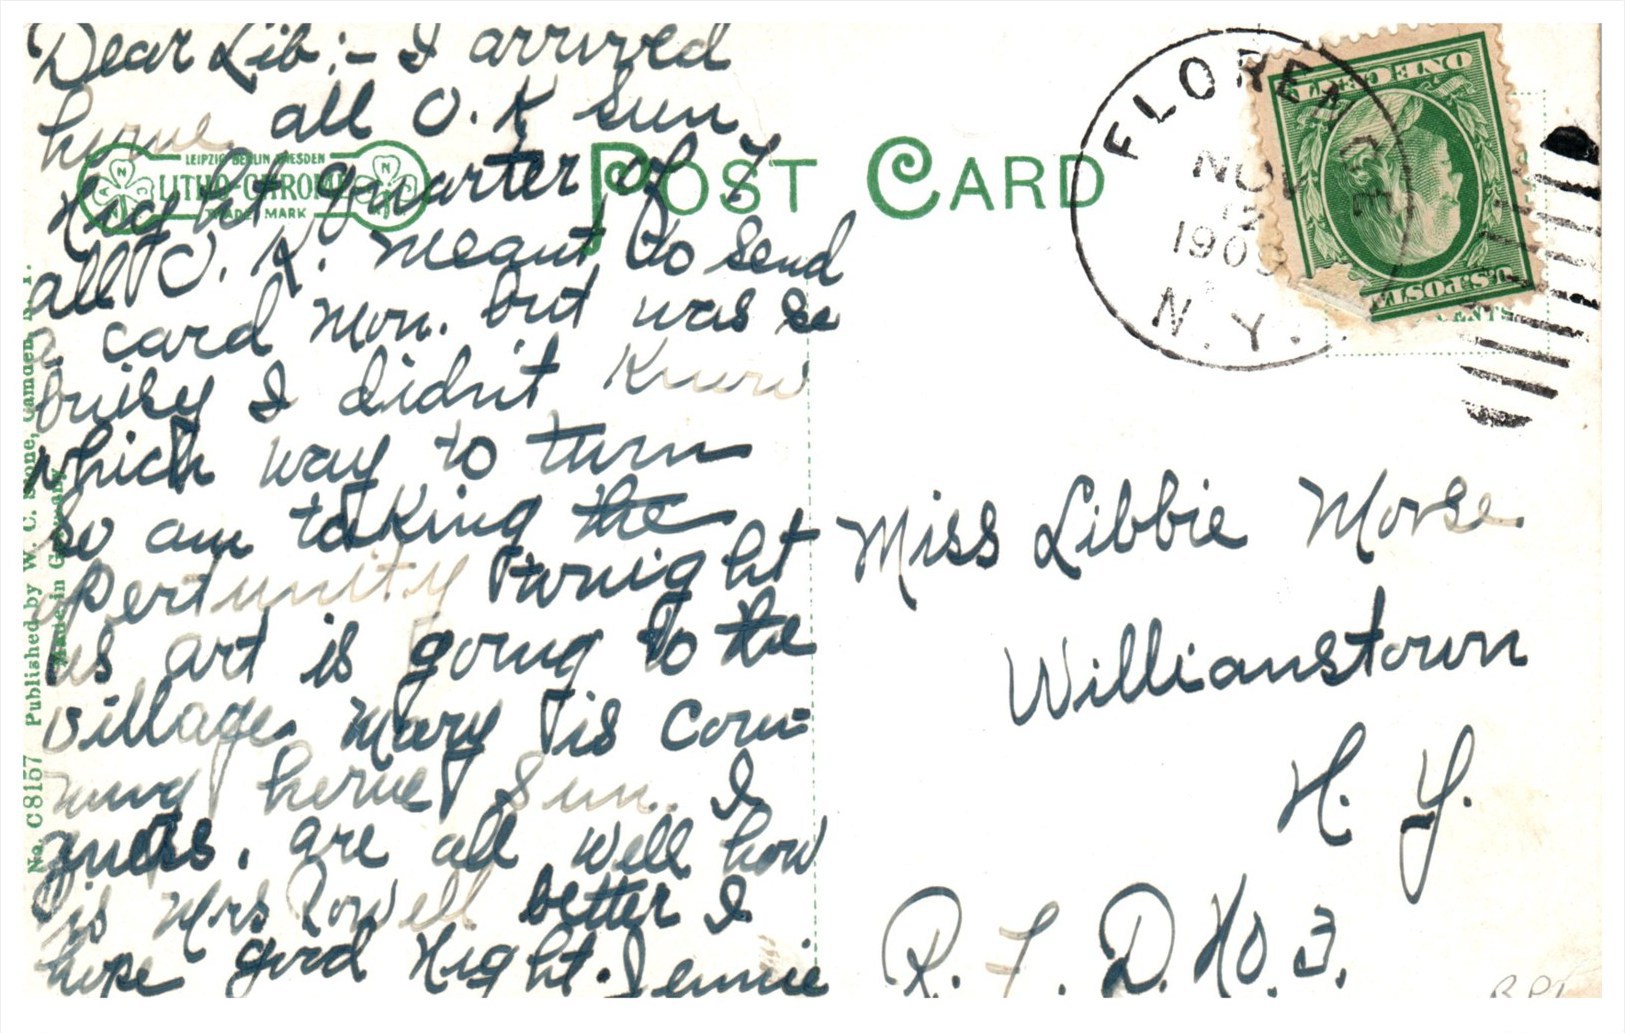 Dear Lib:- I arrived
home all O.K Sun
Night quarter of 7
all O.K. meant to send
a card Mon. but was so
buisy I didn't know
which way to turn
so am taking the
opertunity tonight
as art is going to the
village. Mary is com=
ming home Sun. I
guess. are all well how
is Mrs Rowell better I
hope good Night. Jennie
LEIPZIG BERLIN DRESDEN
LITHO-CHROME
TRADE MARK
POST CARD
No. C8157 Published by W. C. Stone, Camden, N. Y.
Made in Germany
FLORENCE
NOV
1909
N.Y.
ONE CENT
U.S. POST
CENTS
Miss Libbie Morse
Willianstown
N. Y.
R. F. D. No. 3.